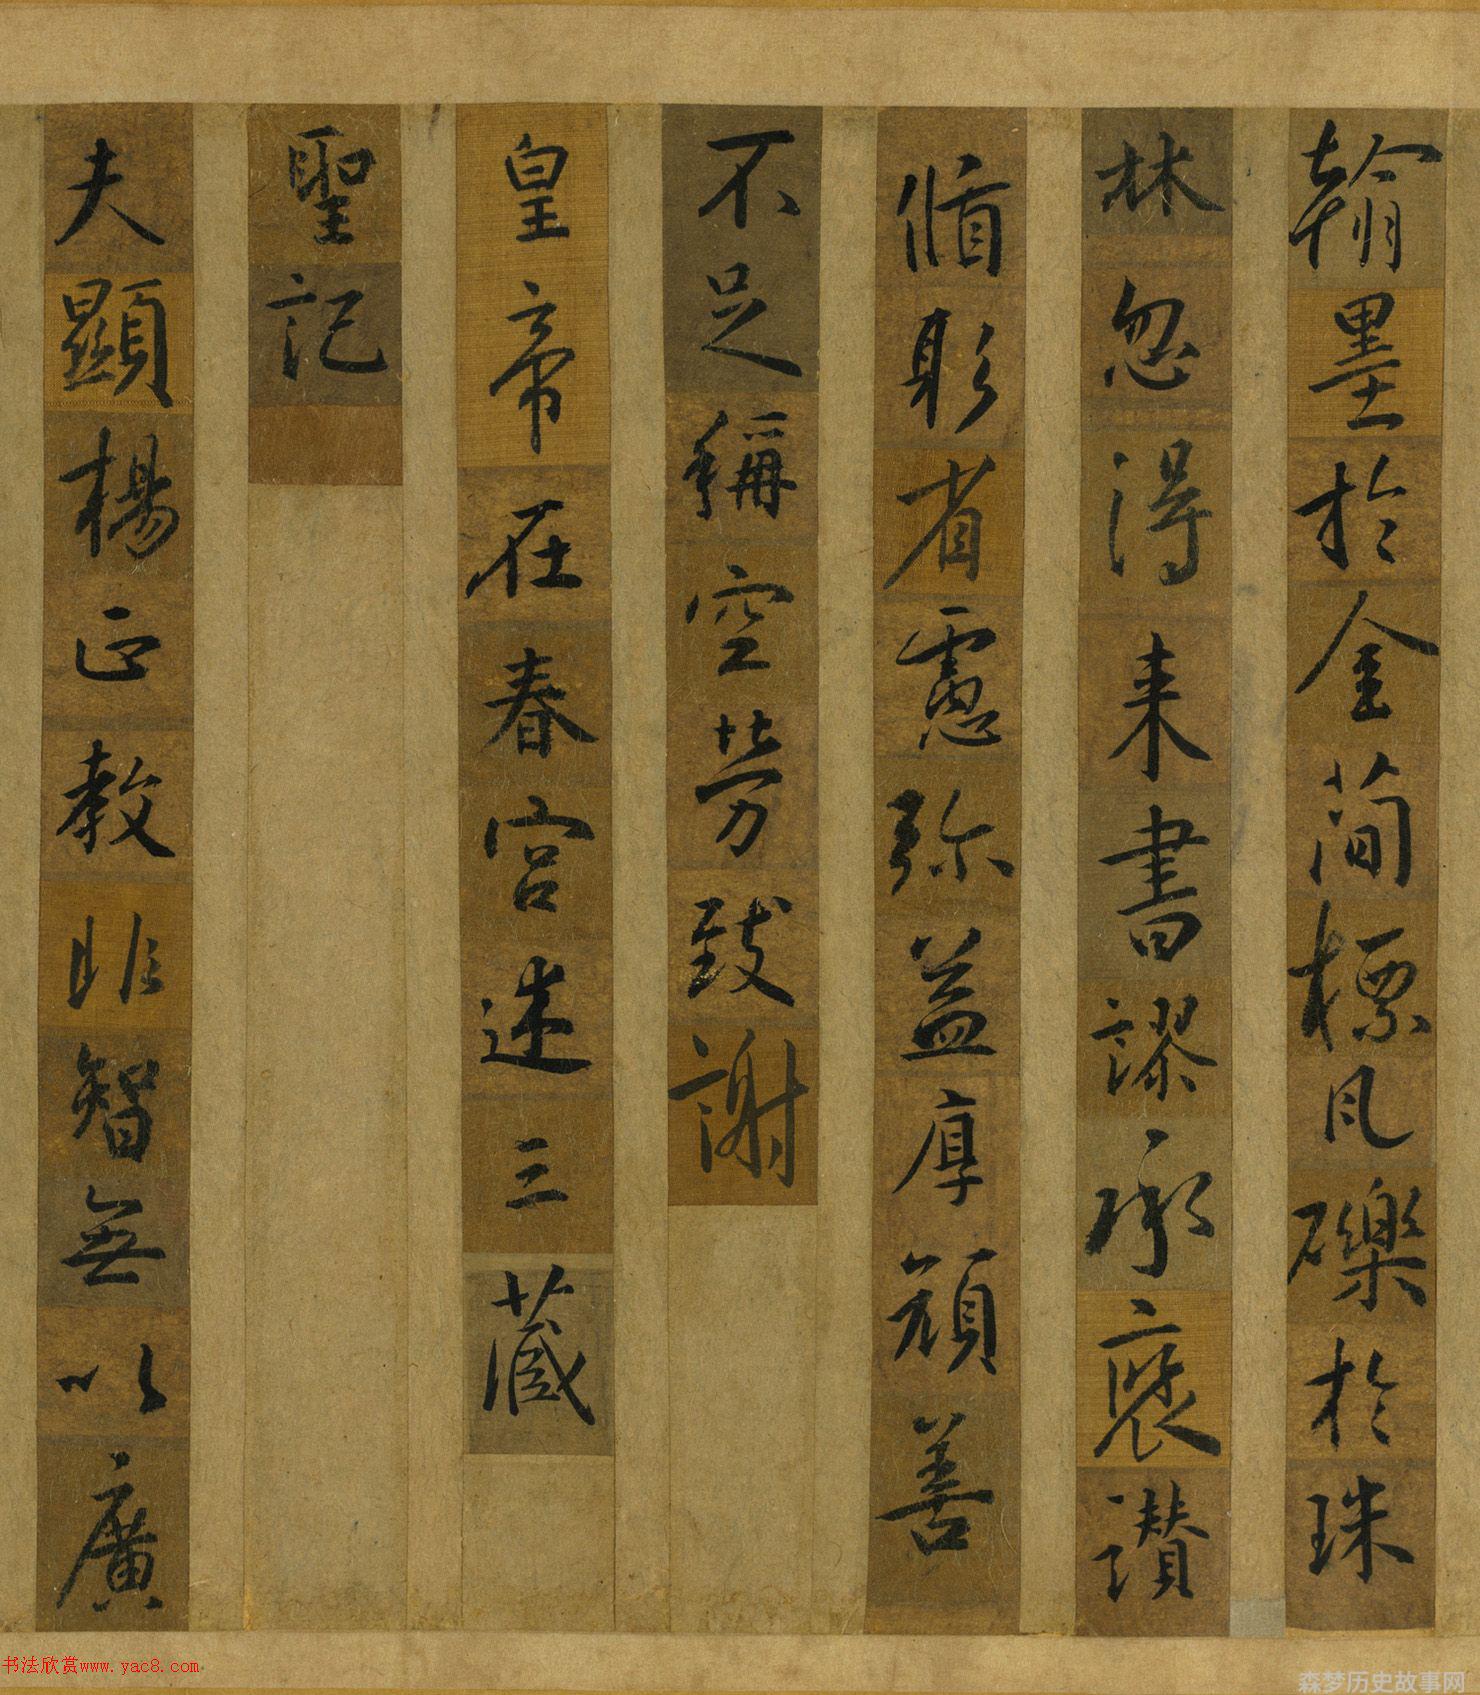 翰墨於金簡標瓦礫於珠
林忽得来書謬承褒讃
脩躬省慮弥益厚顔善
不足稱空勞致謝
皇帝在春宮述三藏
聖記
夫顯楊正教非智無以廣
书法欣赏www.yac8.com
森梦历史故事网